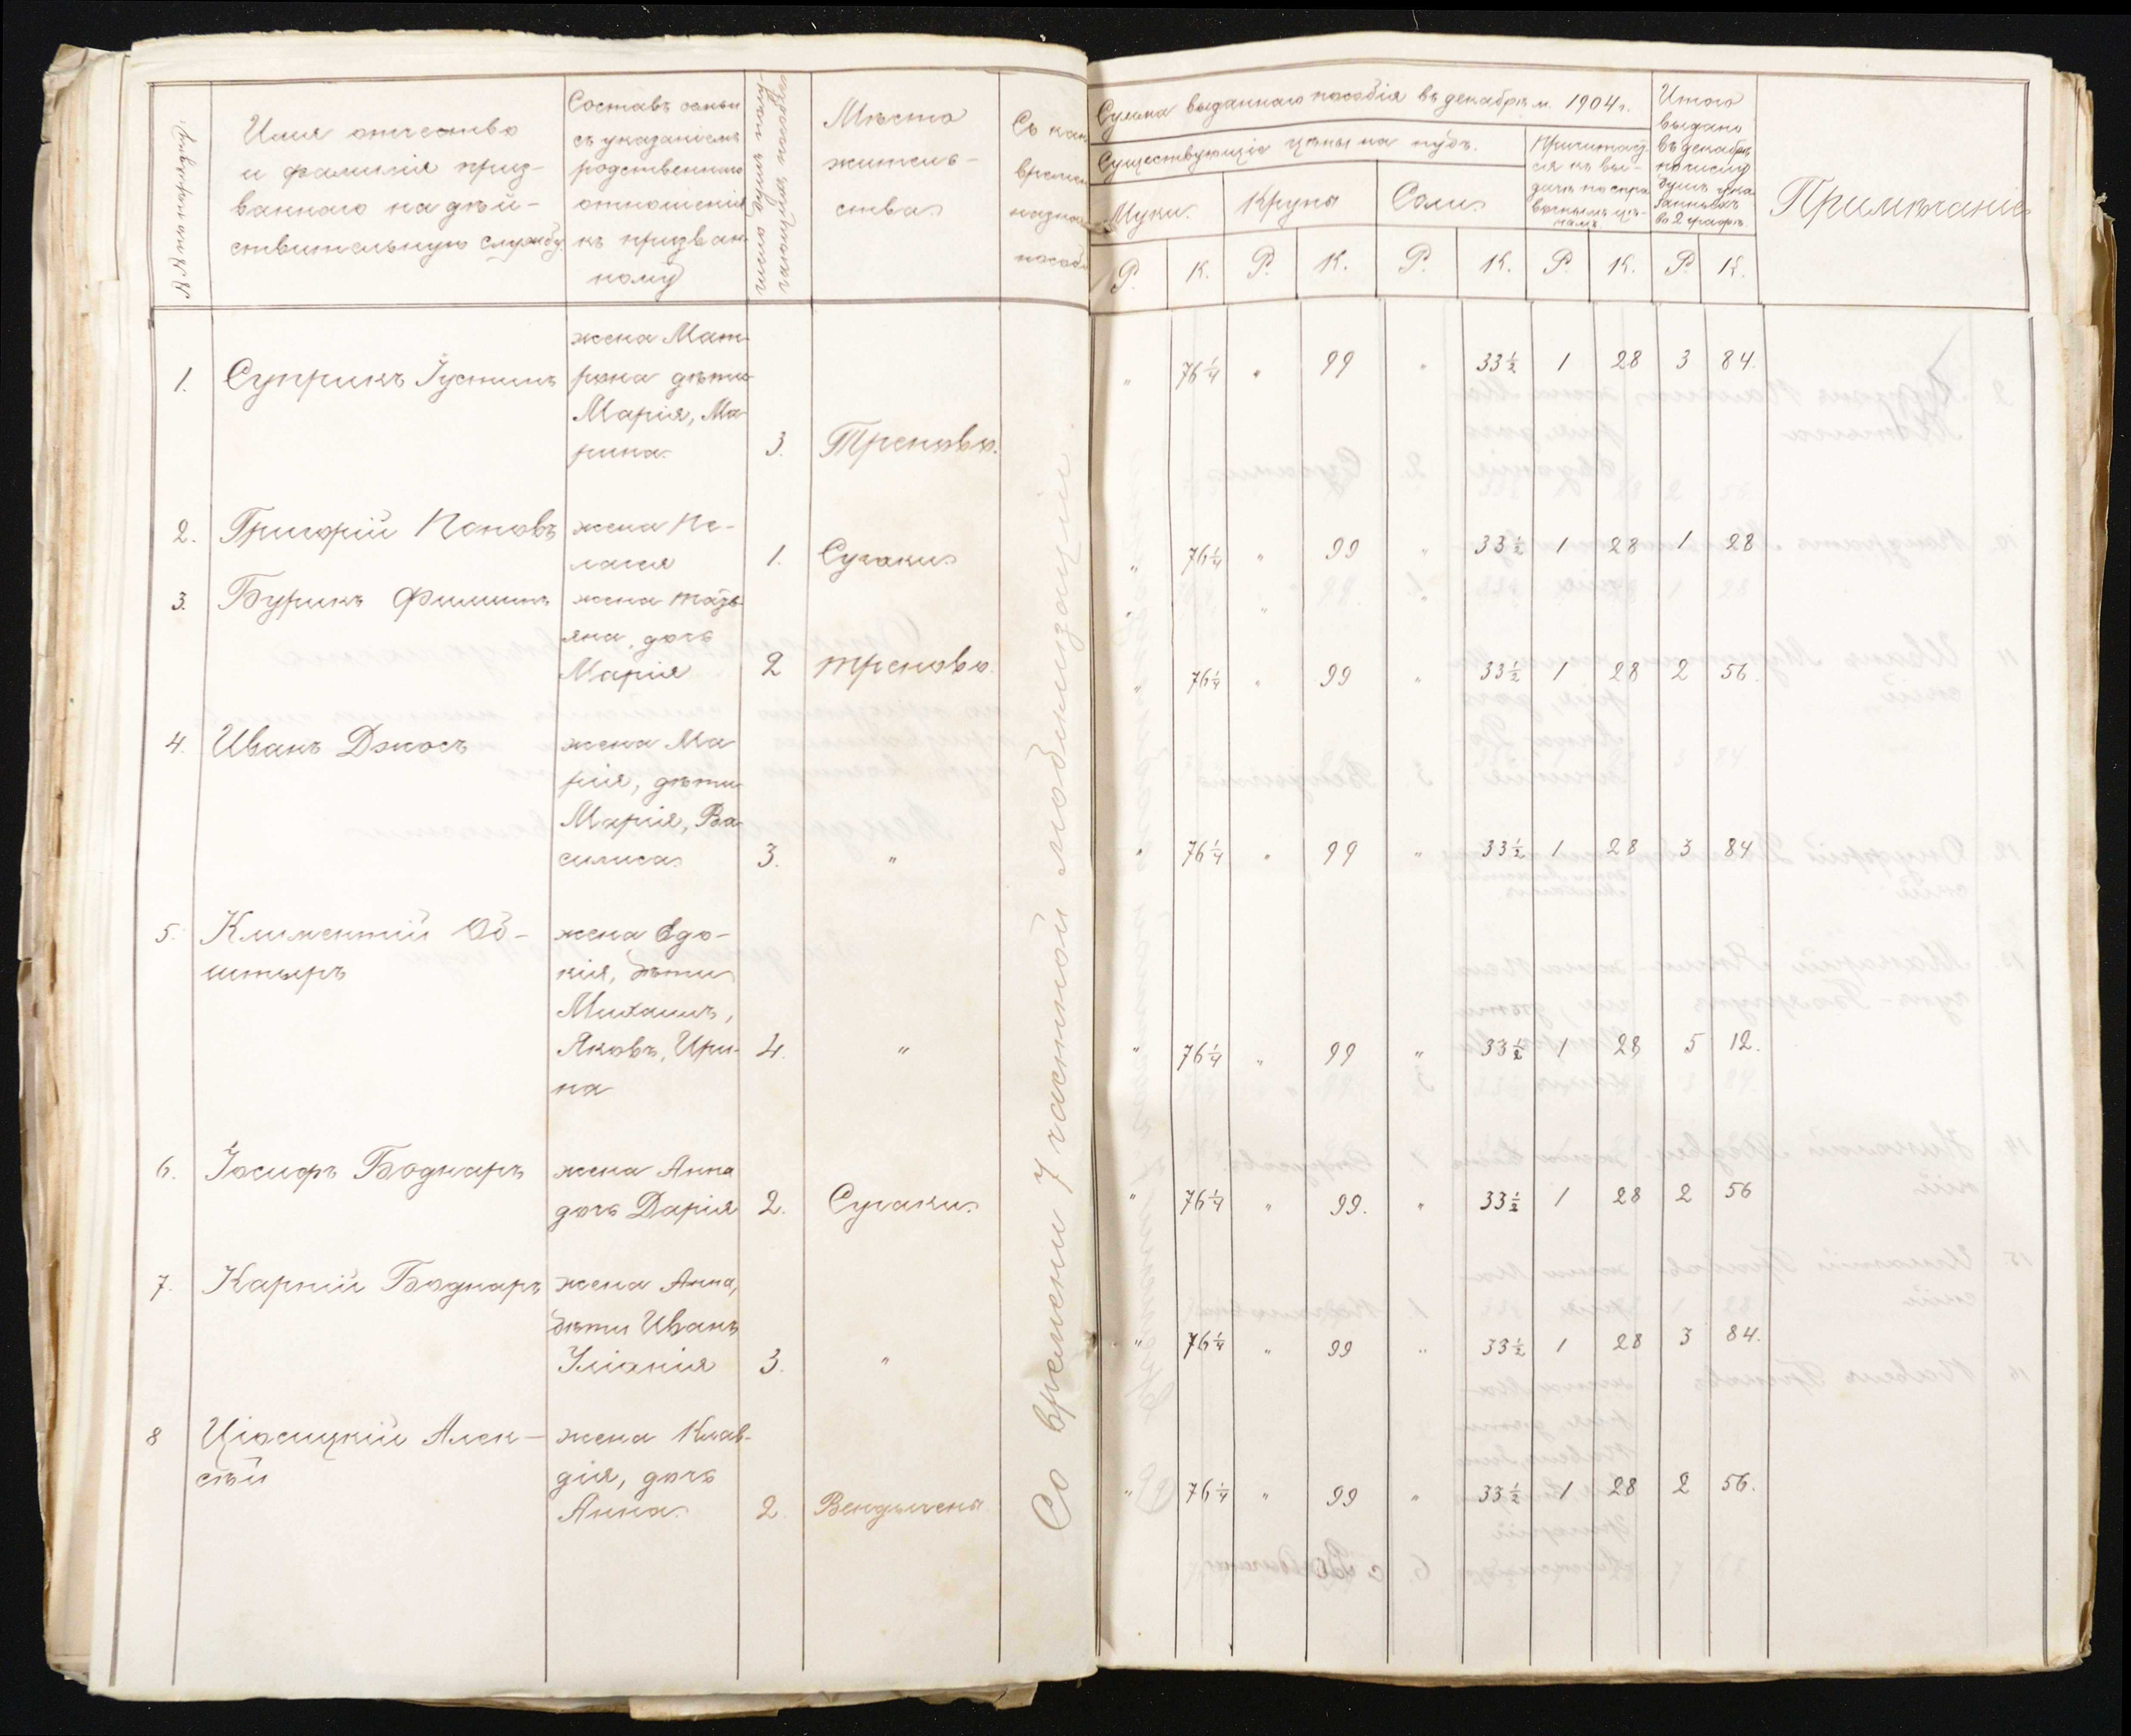 №№ по порядку
Имя отчество
и фамилія приз-
ваннаго на дѣй-
ствительную службу
Составъ семьи
съ указаніемъ
родственнаго
отношенія
къ призван-
ному
число душъ полу-
чающихъ пособіе
Мѣсто
житель-
ства
Съ как
времен
назнач
пособ
Сумма выданнаго пособія въ декабрѣ м. 1904 г.
Существующія цѣны на пудъ.
Муки.
Крупы
Соли
Причитаю-
ся къ вы-
дачѣ по спра
вочнымъ цѣ-
намъ
Итого
выдано
въ декабрѣ
по числу
душъ указ
занныхъ
въ 2 графѣ
Примѣчаніе
Р. К. Р. К. Р. К. Р. К. Р. К.
1. Суприкъ Іустинъ
жена Мат-
рона дѣти
Марія, Ма-
рина. 3. Треново.
" 76¼ " 99 " 33½ 1 28 3 84.
2. Григорій Поповъ жена Пе-
лагея 1. Сугаки
" 76¼ " 99 " 33½ 1 28 1 28
3. Бурикъ Филипъ жена Тать-
яна, дочь
Марія 2 Треново.
" 76¼ " 99 " 33½ 1 28 2 56.
4. Иванъ Джосъ жена Ма
рія, дѣти
Марія, Ва
силиса 3. "
" 76¼ " 99 " 33½ 1 28 3 84
5. Климентій Об- жена Евдо-
штыръ кія, дѣти
Михаилъ,
Яковъ, Ири- 4. "
на
" 76¼ " 99 " 33½ 1 28 5 12.
6. Іосифъ Боднаръ жена Анна
дочь Дарія 2. Сугаки
" 76¼ " 99. " 33½ 1 28 2 56
7. Карпій Боднаръ жена Анна,
дѣти Иванъ
Уліанія 3. "
" 76¼ " 99 " 33½ 1 28 3 84.
8 Ціосицкій Алек- жена Клав-
сѣй дія, дочь
Анна 2. Вендычены
" 76¼ " 99 " 33½ 1 28 2 56.
Со времени 7 частной мобилизаціи.